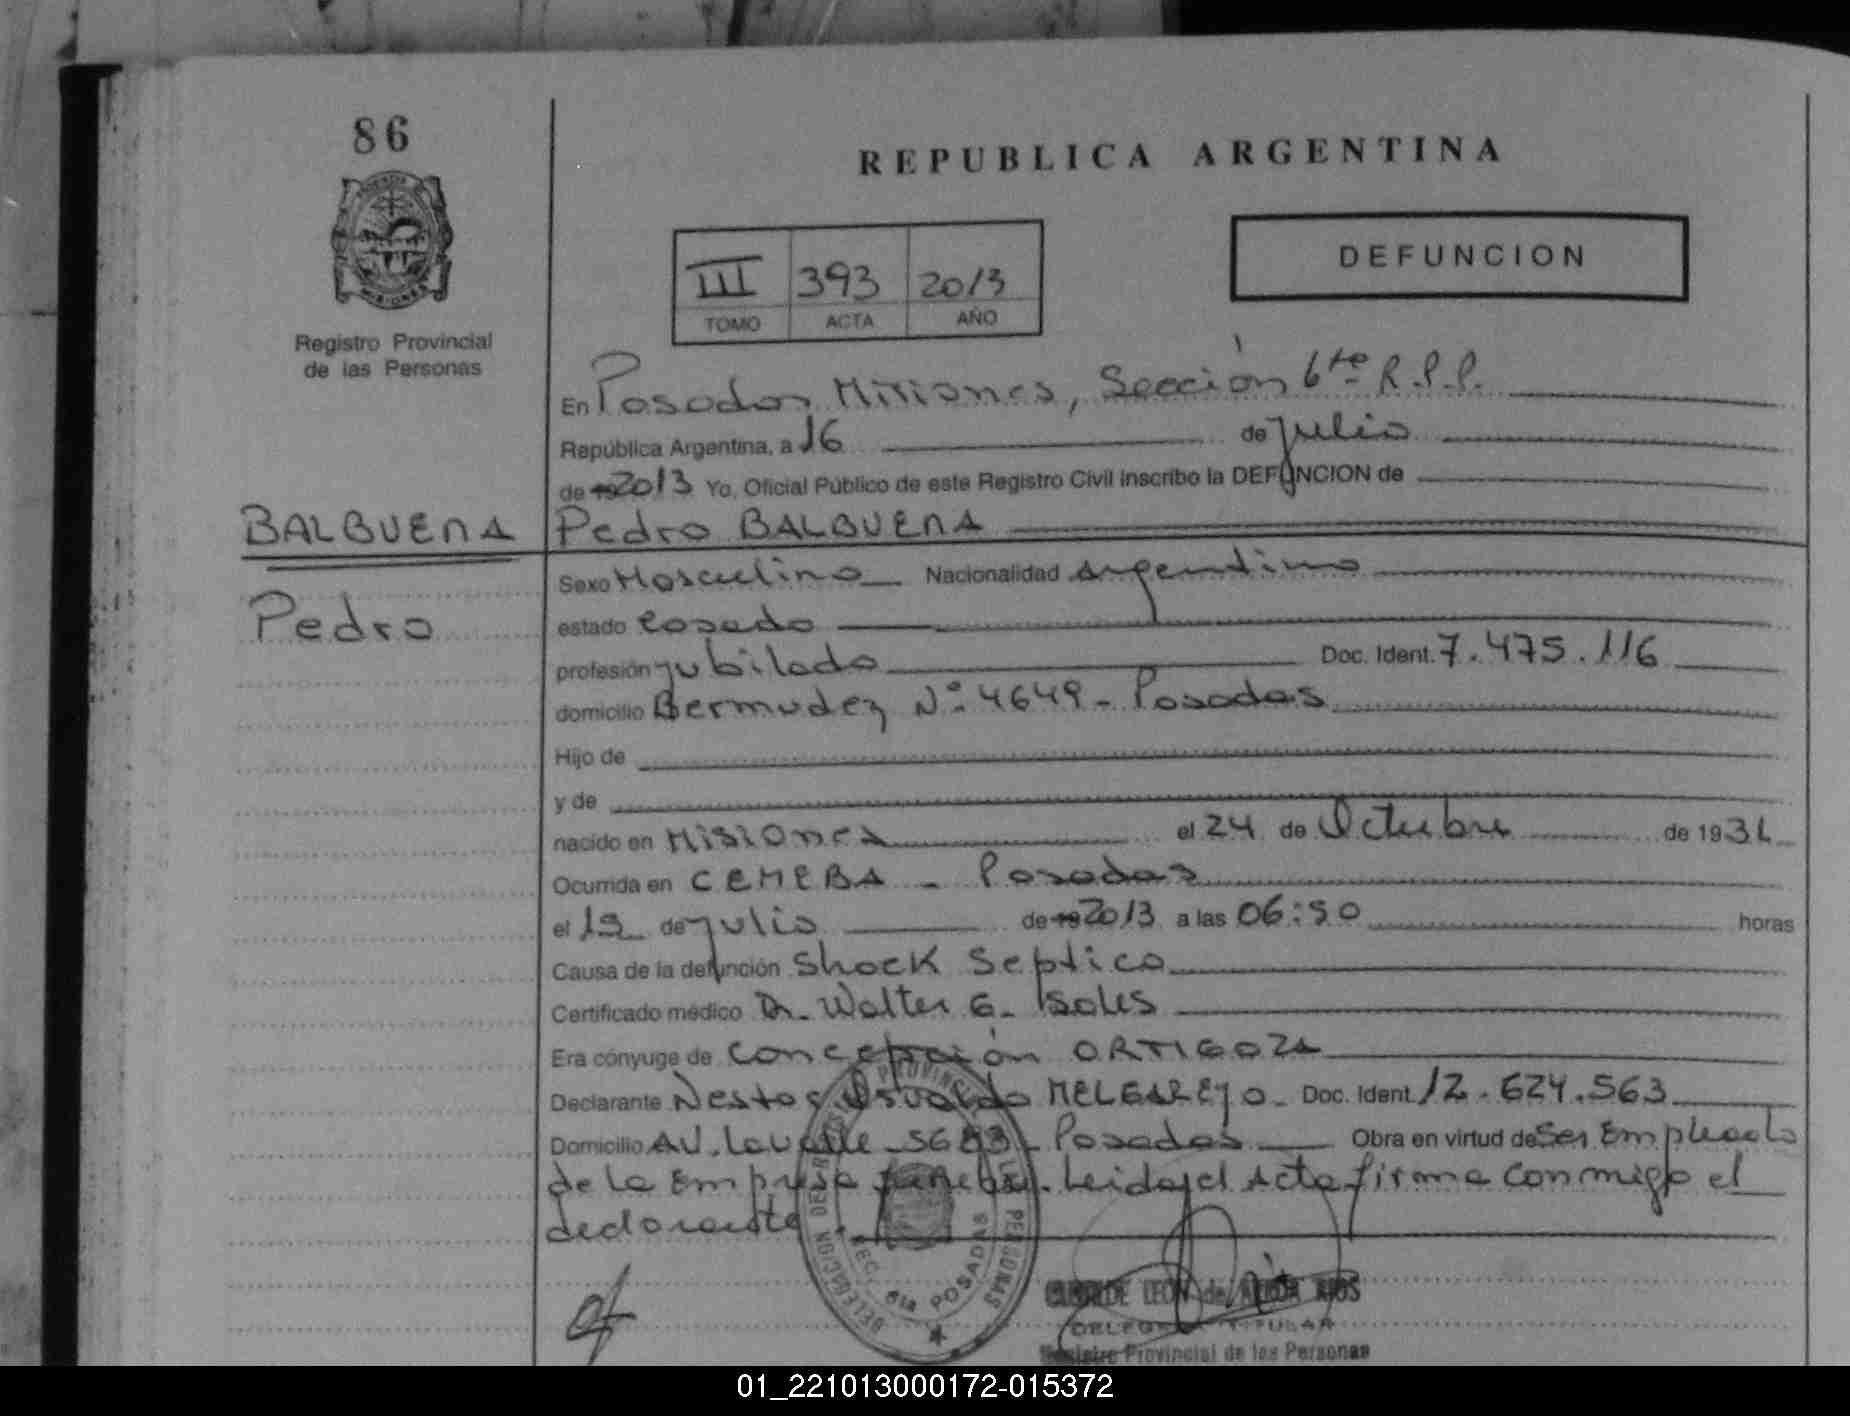 86
REPUBLICA ARGENTINA
DEFUNCION
III 393 2013
TOMO ACTA AÑO
Registro Provincial
de las Personas
En Posadas Misiones, Sección 6ta R.P.P.
República Argentina, a 16 de julio
de 19 2013 Yo, Oficial Público de este Registro Civil inscribo la DEFUNCION de
BALBUENA Pedro BALBUENA
Pedro
Sexo Masculino Nacionalidad Argentino
estado Casado
profesión jubilado Doc. Ident. 7.475.116
domicilio Bermudez Nº 4649 - Posadas
Hijo de
y de
nacido en Misiones el 24 de Octubre de 193
Ocurrida en CEMEBA - Posadas
el de julio de 19 2013 a las 06:50 horas
Causa de la defunción Shock Septico
Certificado médico Dr. Walter G.
Era cónyuge de Concepción ORTIGOZA
Declarante Nestor Osvaldo MELGAREJO - Doc. Ident. 12.624.563
Domicilio AV. Lavalle - Posadas Obra en virtud de Ser Empleado
de la Empresa funebre. Leida el Acta firma conmigo el
declarante
DELEGACION DEL REGISTRO PROVINCIAL DE LAS PERSONAS
SEC. 6ta POSADAS
LEON de
DELEGADA TITULAR
Registro Provincial de las Personas
01_221013000172-015372